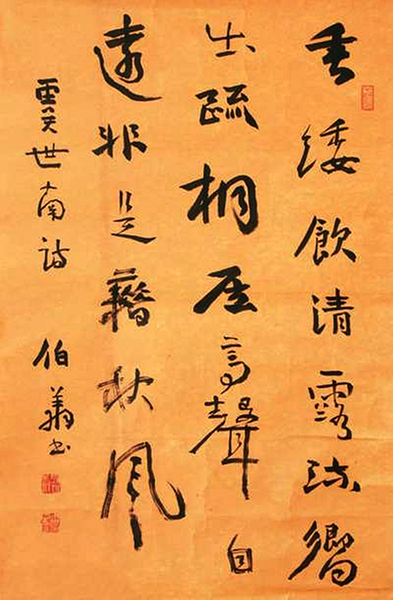 垂緌飲清露流響
出疏桐居高聲自
遠非是藉秋風
虞世南詩 伯 書